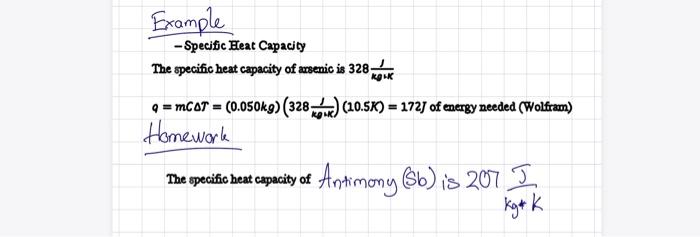 Example
- Specific Heat Capacity
The specific heat capacity of arsenic is 328 J/kg*K
q = mCΔT = (0.050kg) (328 J/kg*K) (10.5K) = 172J of energy needed (Wolfram)
Homework
The specific heat capacity of Antimony (Sb) is 207 J/kg*K